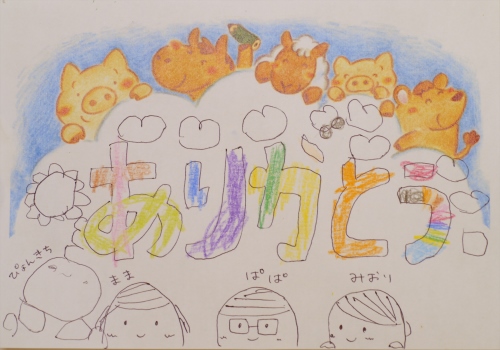 ありがとう
ぴょんきち
まま
ぱぱ
みおり